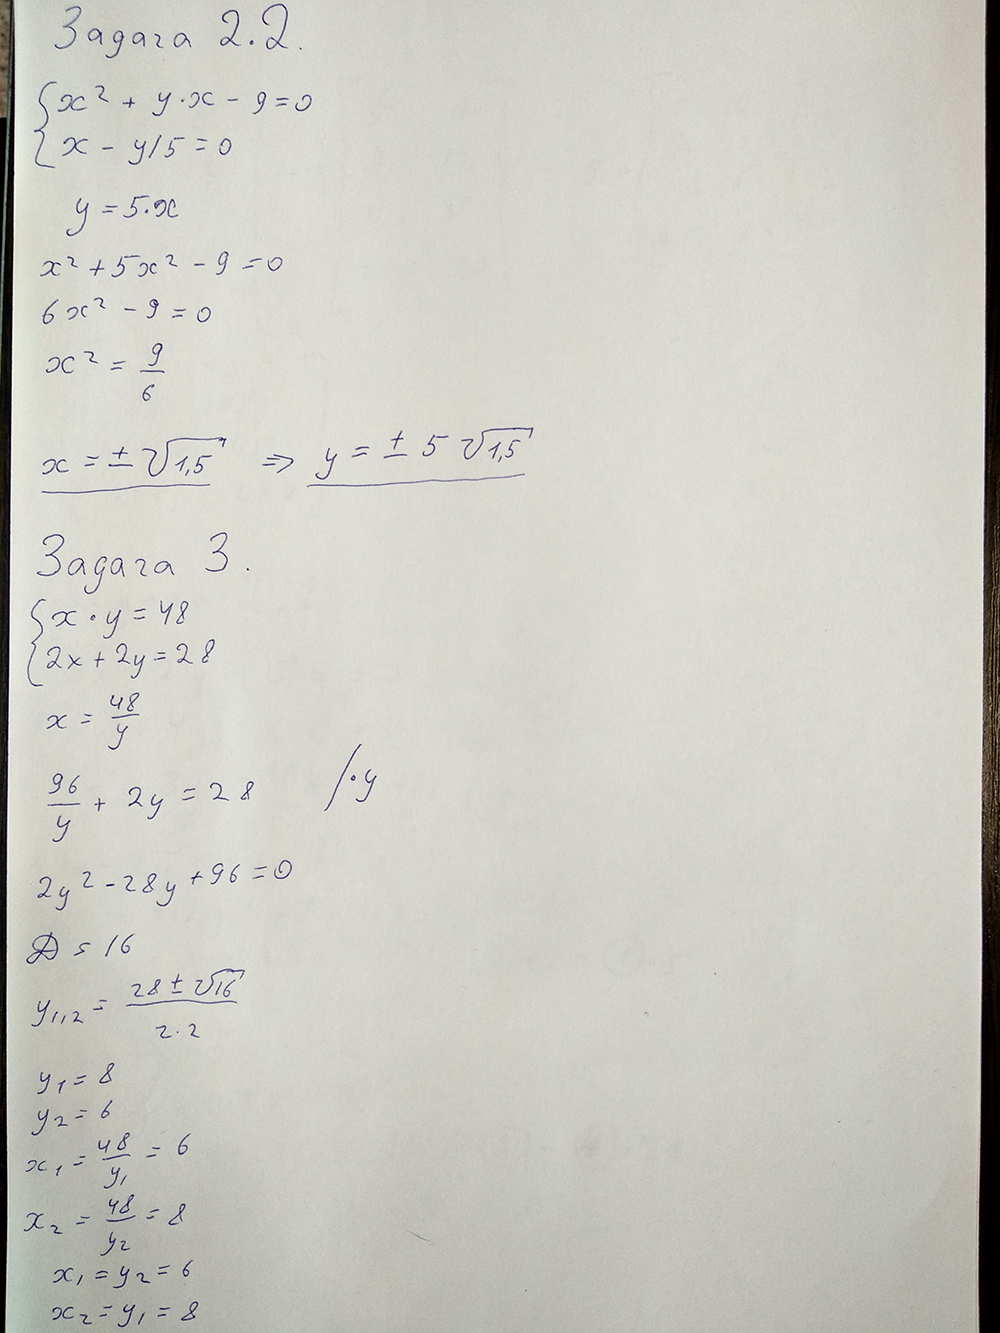 Задача 2.2.
{ x² + y·x - 9 = 0
x - y/5 = 0
y = 5·x
x² + 5x² - 9 = 0
6x² - 9 = 0
x² = 9/6
x = ± √1,5 ⇒ y = ± 5 √1,5
Задача 3.
{ x · y = 48
2x + 2y = 28
x = 48/y
96/y + 2y = 28 /·y
2y² - 28y + 96 = 0
D = 16
y₁,₂ = (28 ± √16)/(2·2)
y₁ = 8
y₂ = 6
x₁ = 48/y₁ = 6
x₂ = 48/y₂ = 8
x₁ = y₂ = 6
x₂ = y₁ = 8